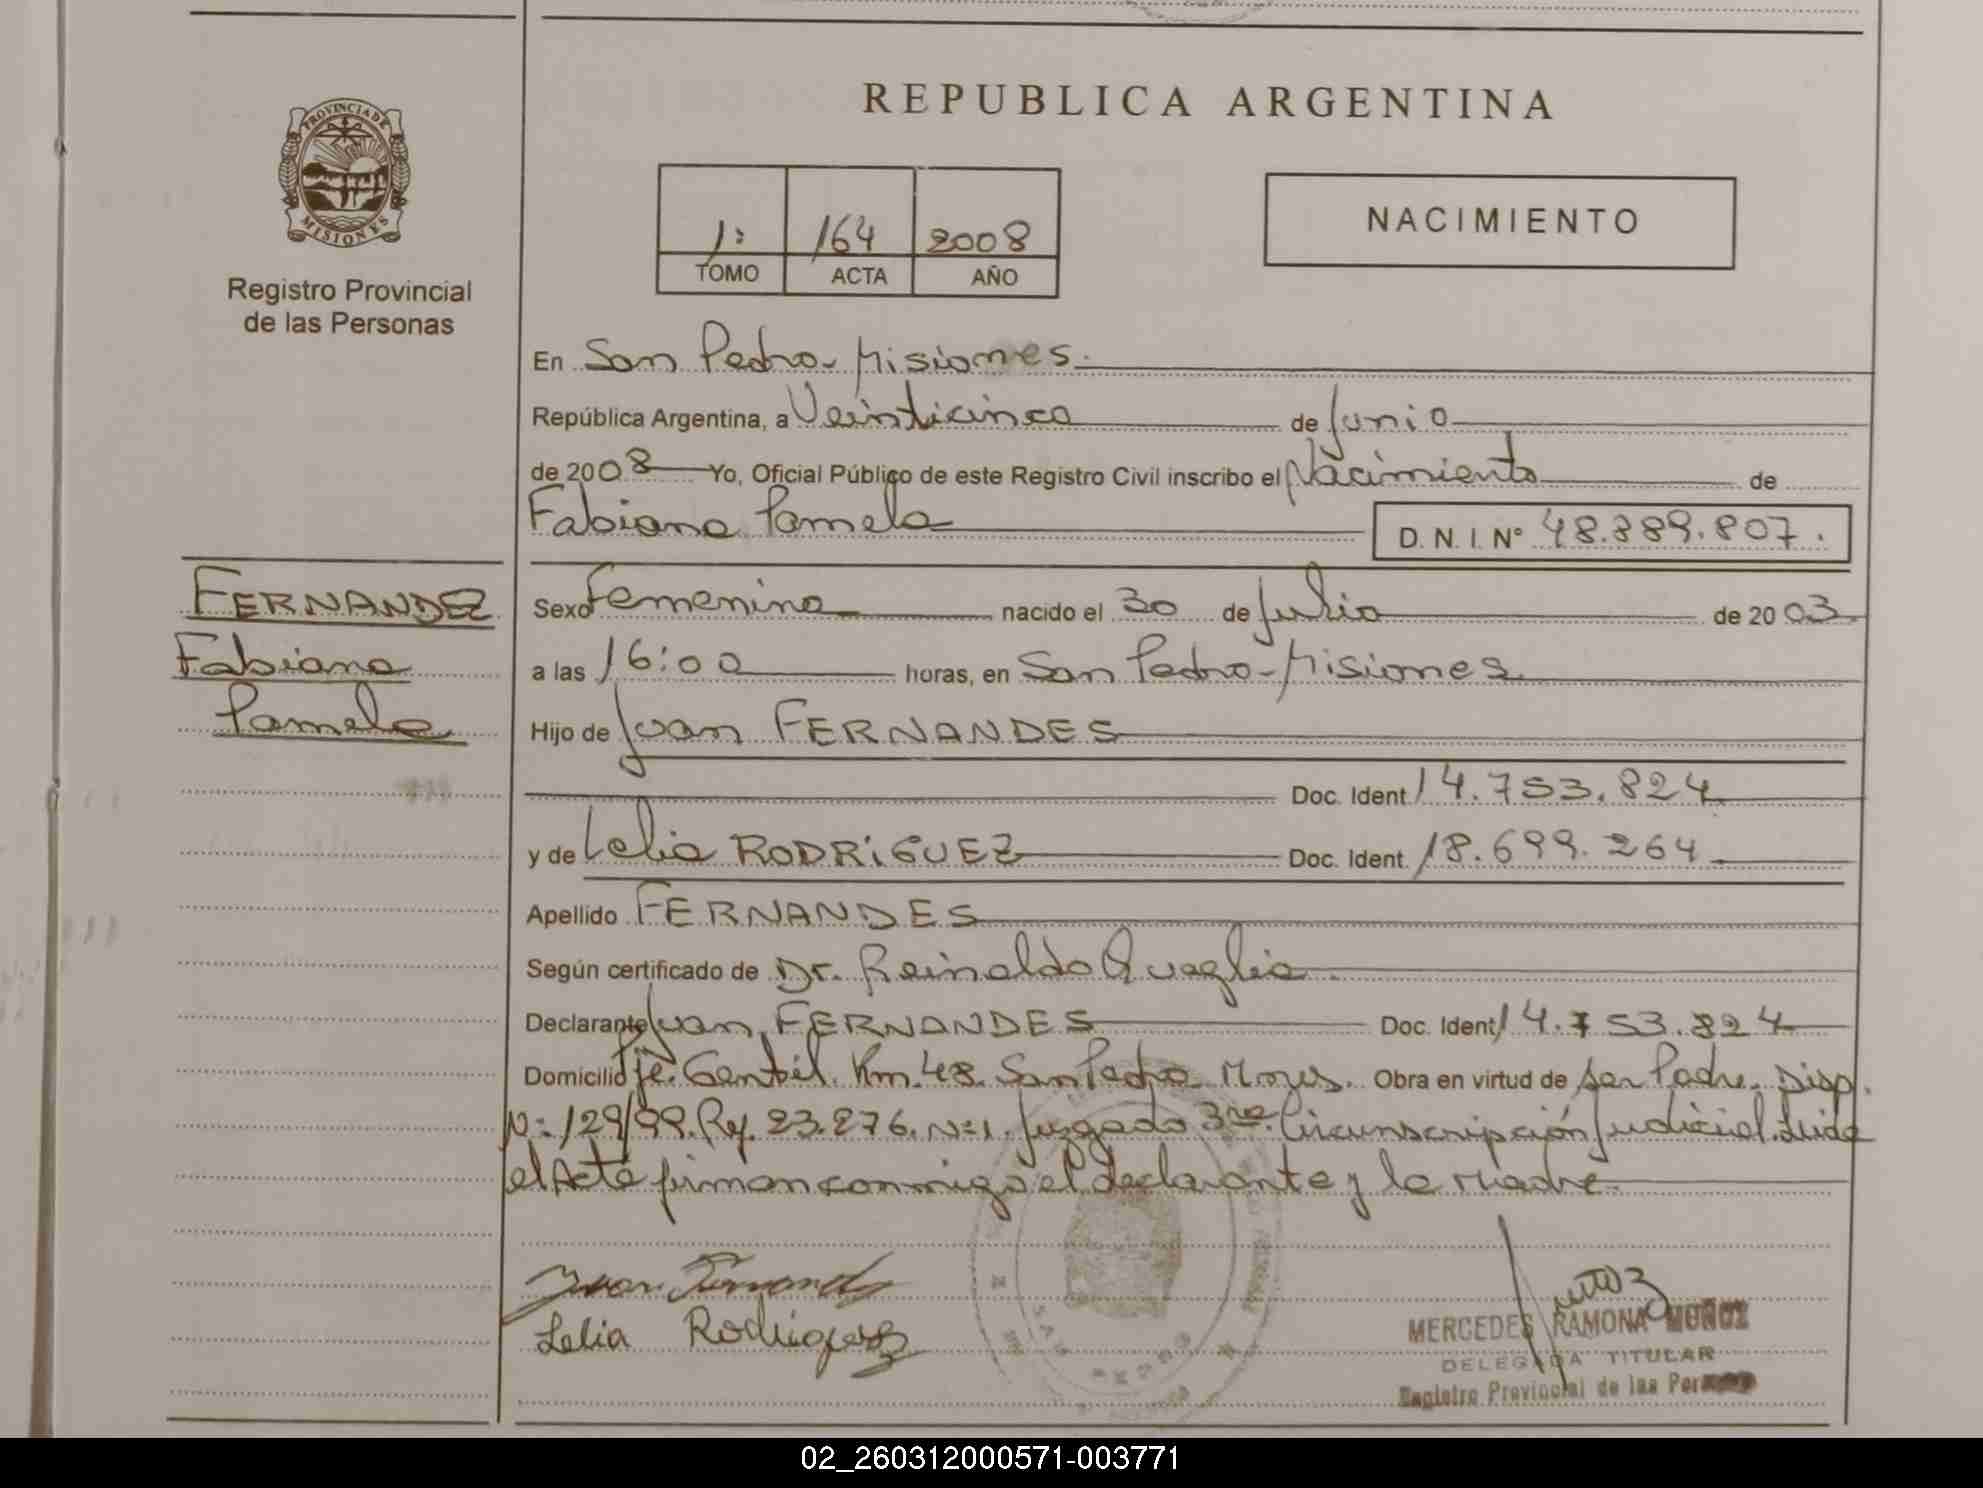 REPUBLICA ARGENTINA
PROVINCIA DE
MISIONES
Registro Provincial
de las Personas
1: 164 2008
TOMO ACTA AÑO
NACIMIENTO
En San Pedro - Misiones.
República Argentina, a Veinticinco de Junio
de 2008 Yo, Oficial Público de este Registro Civil inscribo el Nacimiento de
Fabiana Pamela D. N. I. Nº 48.889.807.
FERNANDEZ
Fabiana
Pamela
Sexo Femenino nacido el 30 de Julio de 2003
a las 16:00 horas, en San Pedro - Misiones
Hijo de Juan FERNANDES
Doc. Ident. 14.753.824
y de Lelia RODRIGUEZ Doc. Ident. 18.699.264
Apellido FERNANDES
Según certificado de Dr. Reinaldo Quaglia.
Declarante Juan FERNANDES Doc. Ident. 14.753.824
Domicilio Pje. Gentil. Km. 48. San Pedro Mnes. Obra en virtud de ser Padre. Disp.
Nº: 129/99. 23.276. Nº1. Juzgado 3ra. Circunscripción Judicial. Leida
el Acta firman conmigo el declarante y la Madre.
Juan Fernandes
Lelia Rodriguez
MERCEDES RAMONA MUÑOZ
DELEGADA TITULAR
Registro Provincial de las Personas
02_260312000571-003771